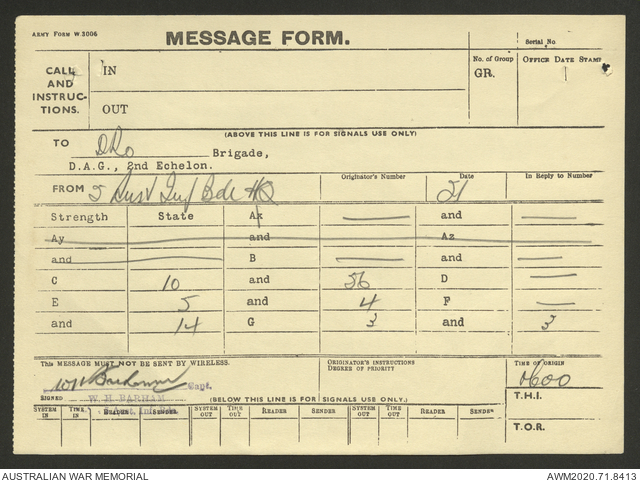 ARMY FORM W.3006
MESSAGE FORM.
Serial No
CALL AND INSTRUC-TIONS.
IN
OUT
No. of Group
GR.
OFFICE DATE STAMP
(ABOVE THIS LINE IS FOR SIGNALS USE ONLY)
TO DRo Brigade,
D.A.G., 2nd Echelon.
FROM 5 Aust Inf Bde HQ
Originator's Number
Date
21
In Reply to Number
Strength State Ax — and —
Ay and Az
and B — and —
C 10 and 56 D —
E 5 and 4 F —
and 14 G 3 and 3
THIS MESSAGE MUST NOT BE SENT BY WIRELESS.
ORIGINATOR'S INSTRUCTIONS
DEGREE OF PRIORITY
TIME OF ORIGIN
0600
Capt.
SIGNED W. H. BARHAM
(BELOW THIS LINE IS FOR SIGNALS USE ONLY.)
T.H.I.
SYSTEM IN TIME IN READER SENDER SYSTEM OUT TIME OUT READER SENDER SYSTEM OUT TIME OUT READER SENDER
T.O.R.
AUSTRALIAN WAR MEMORIAL
AWM2020.71.8413